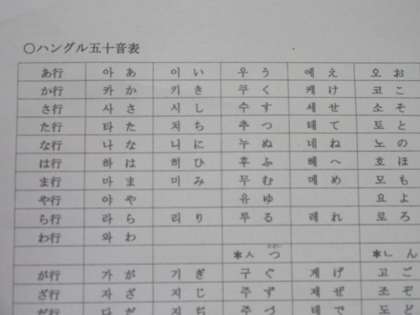 ○ハングル五十音表
あ行 아 あ 이 い 우 う 에 え 오 お
か行 카 か 키 き 쿠 く 케 け 코 こ
さ行 사 さ 시 し 수 す 세 せ 소 そ
た行 타 た 치 ち 추 つ 테 て 토 と
な行 나 な 니 に 누 ぬ 네 ね 노 の
は行 하 は 히 ひ 후 ふ 헤 へ 호 ほ
ま行 마 ま 미 み 무 む 메 め 모 も
や行 야 や 유 ゆ 요 よ
ら行 라 ら 리 り 루 る 레 れ 로 ろ
わ行 와 わ
*ㅅ つ *ㄴ ん
が行 가 が 기 ぎ 구 ぐ 게 げ 고 ご
ざ行 자 ざ 지 じ 주 ず 제 ぜ 조 ぞ